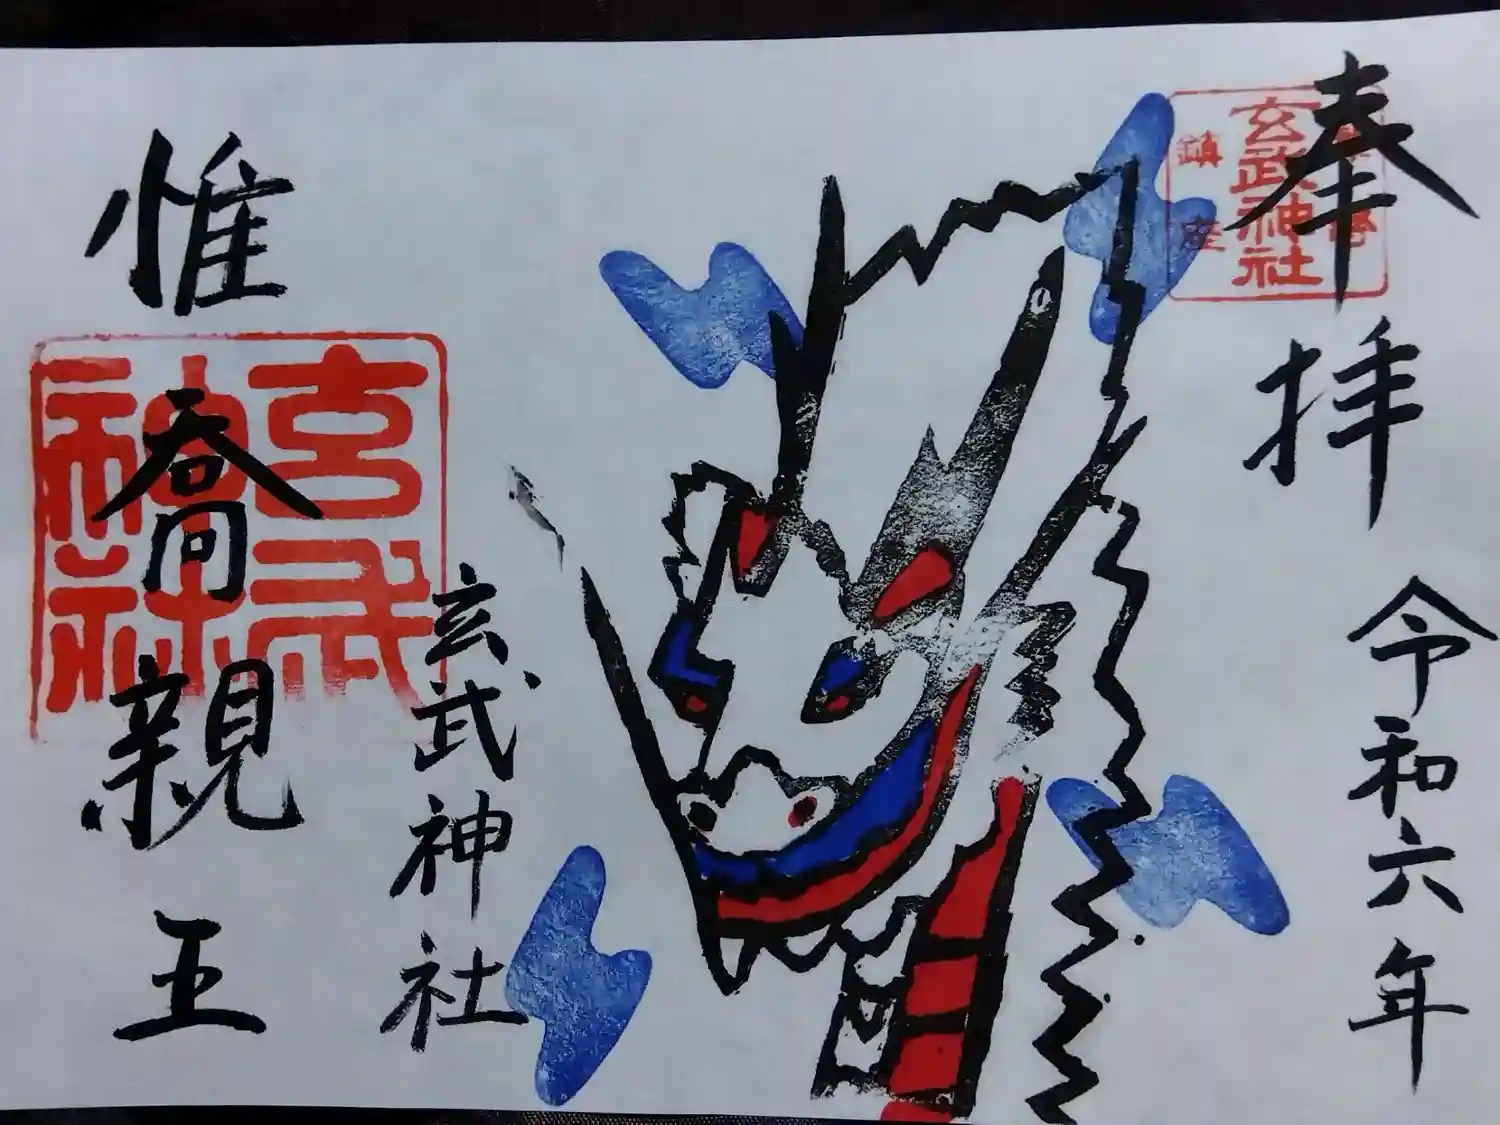 奉拝
令和六年
玄武神社
鎮座
玄武神社
惟喬親王
玄武神社